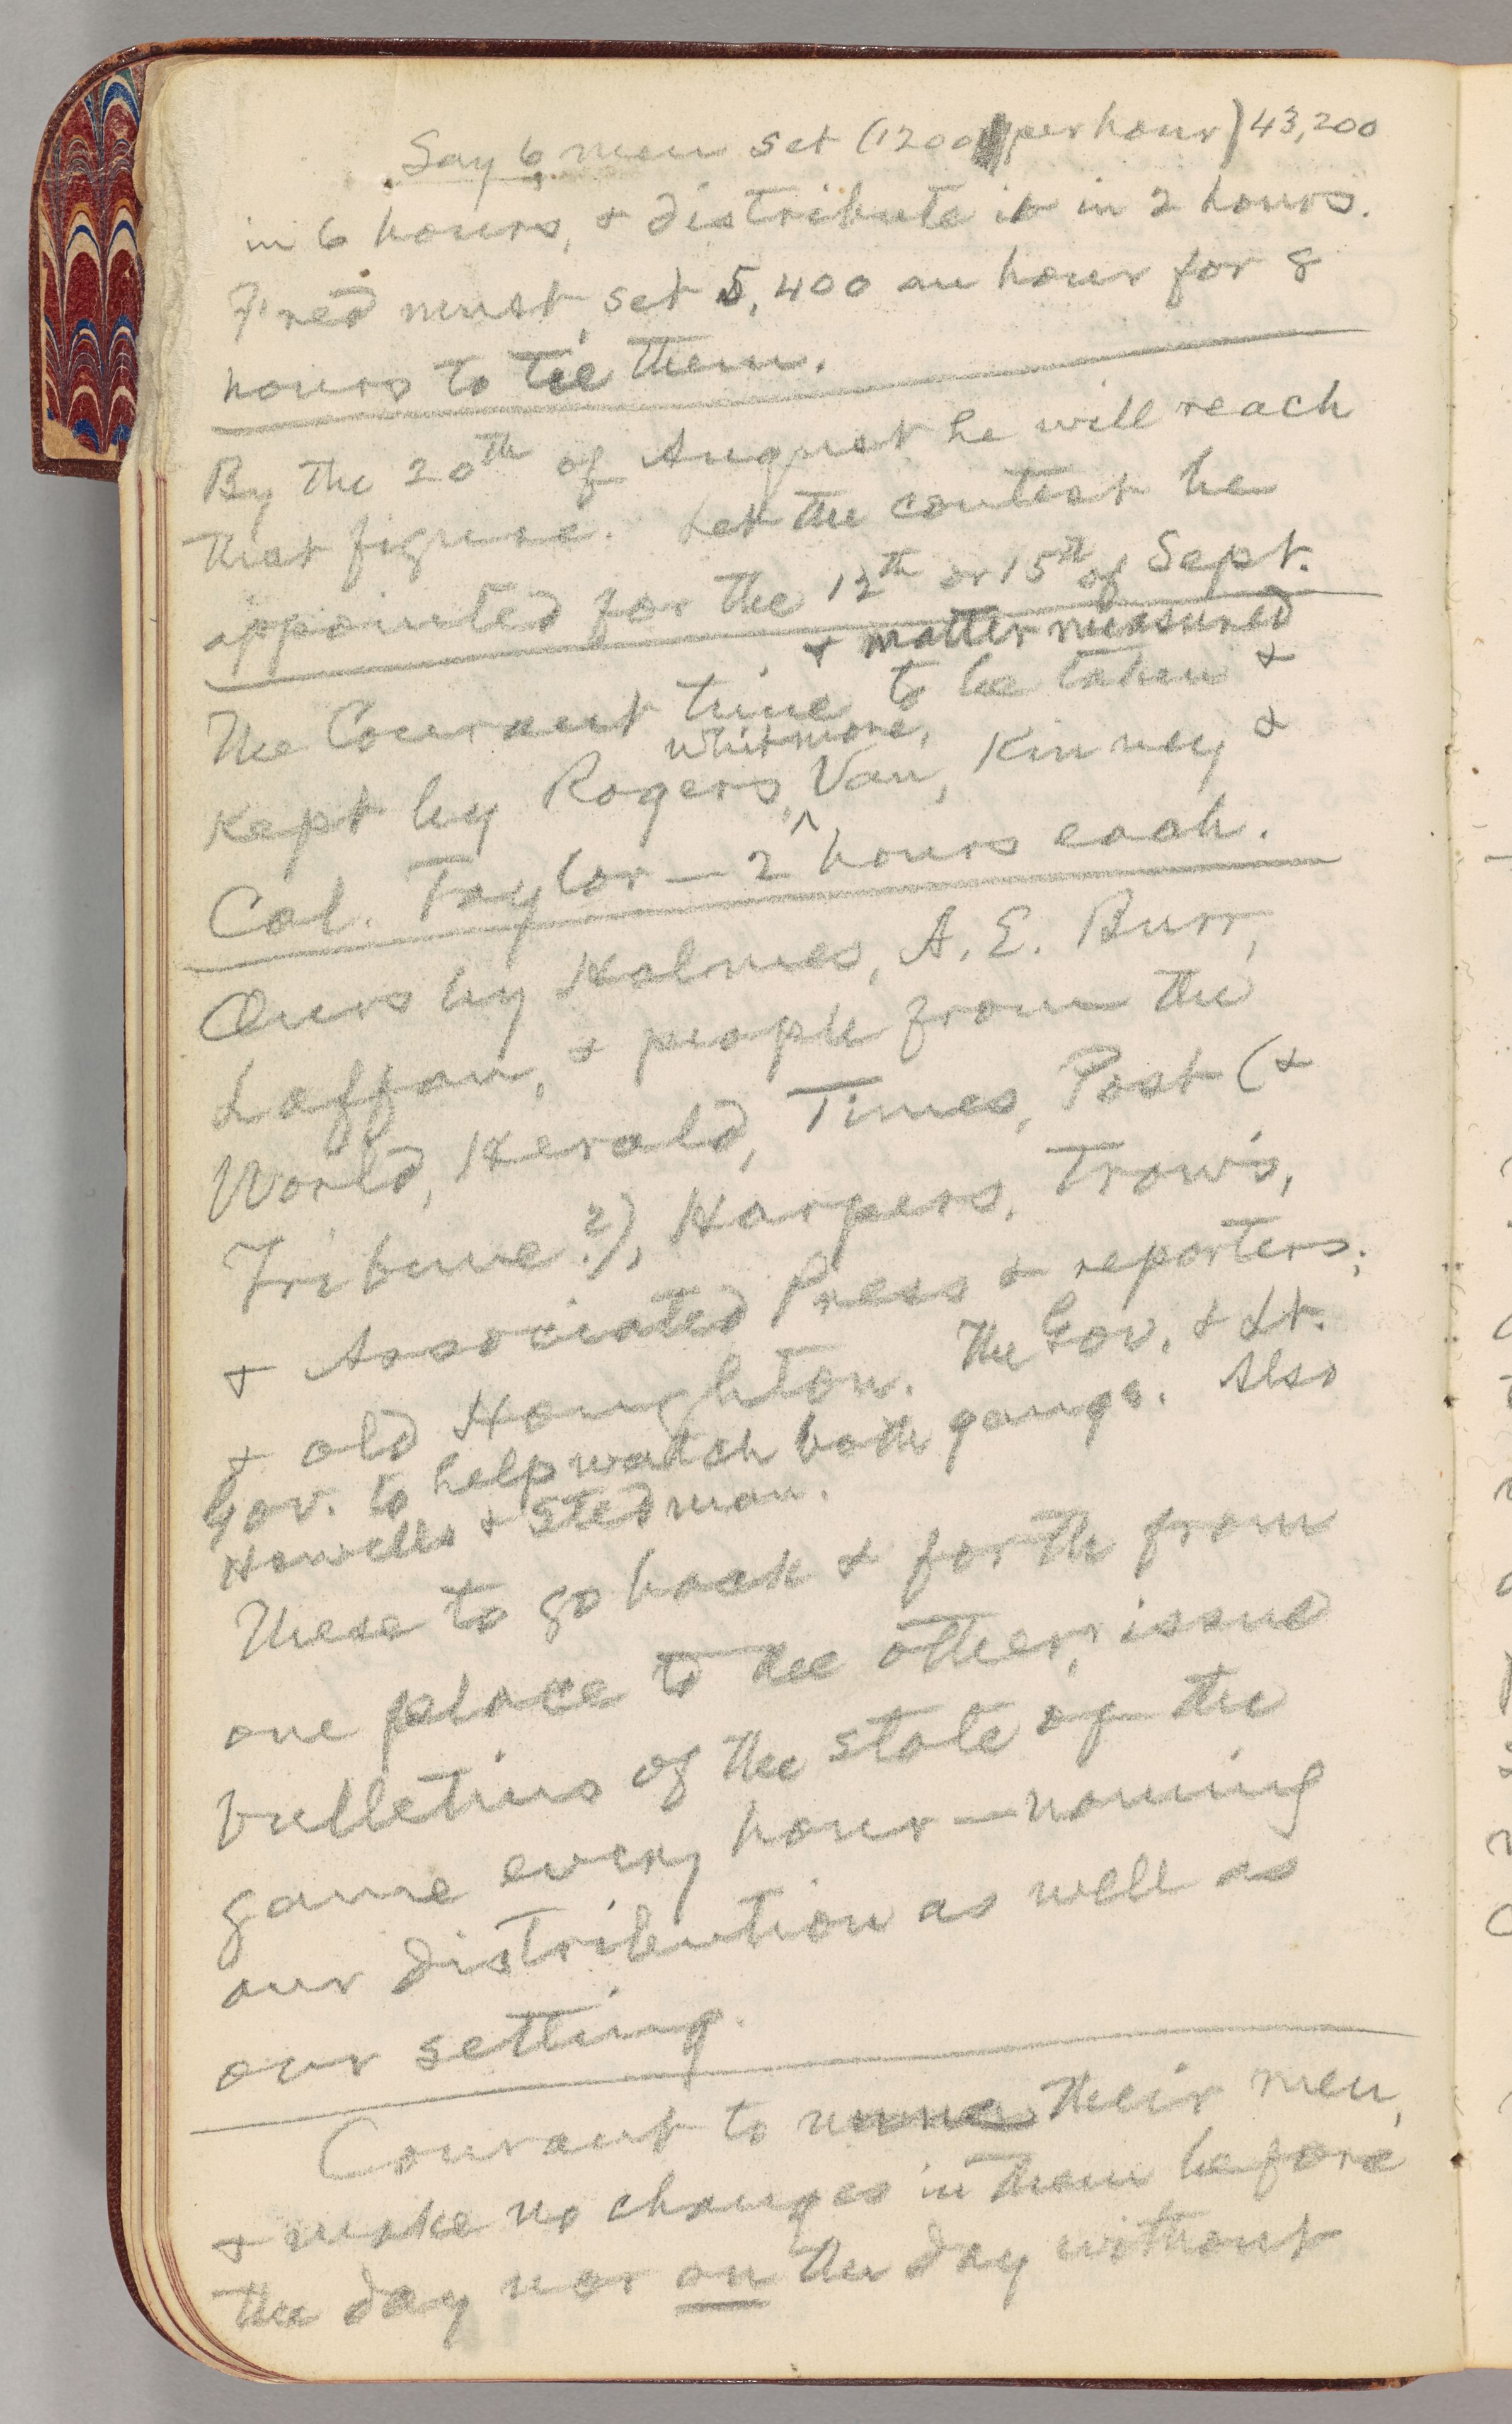 Say 6 men set (1200 per hour) 43,200
in 6 hours, & distribute it in 2 hours.
Fred must set 5,400 an hour for 8
hours to tie them.
By the 20th of August he will reach
that figure. Let the contest be
appointed for the 12th or 15th of Sept.
& matter measured
The Courant time to be taken &
Whitmore,
kept by Rogers, Van, Kinney &
Col. Taylor — 2 hours each.
Ours by Holmes, A. E. Burr,
Laffan, & people from the
World, Herald, Times, Post (&
Tribune?), Harpers, Trow's,
& Associated Press & reporters;
& old Houghton. The Gov. & Lt.
Gov. to help watch both gangs. Also
Howells & Stedman.
These to go back & forth from
one place to the other; issue
bulletins of the state of the
game every hour — naming
our distribution as well as
our setting.
Courant to name their men,
& make no changes in them before
the day nor on the day without